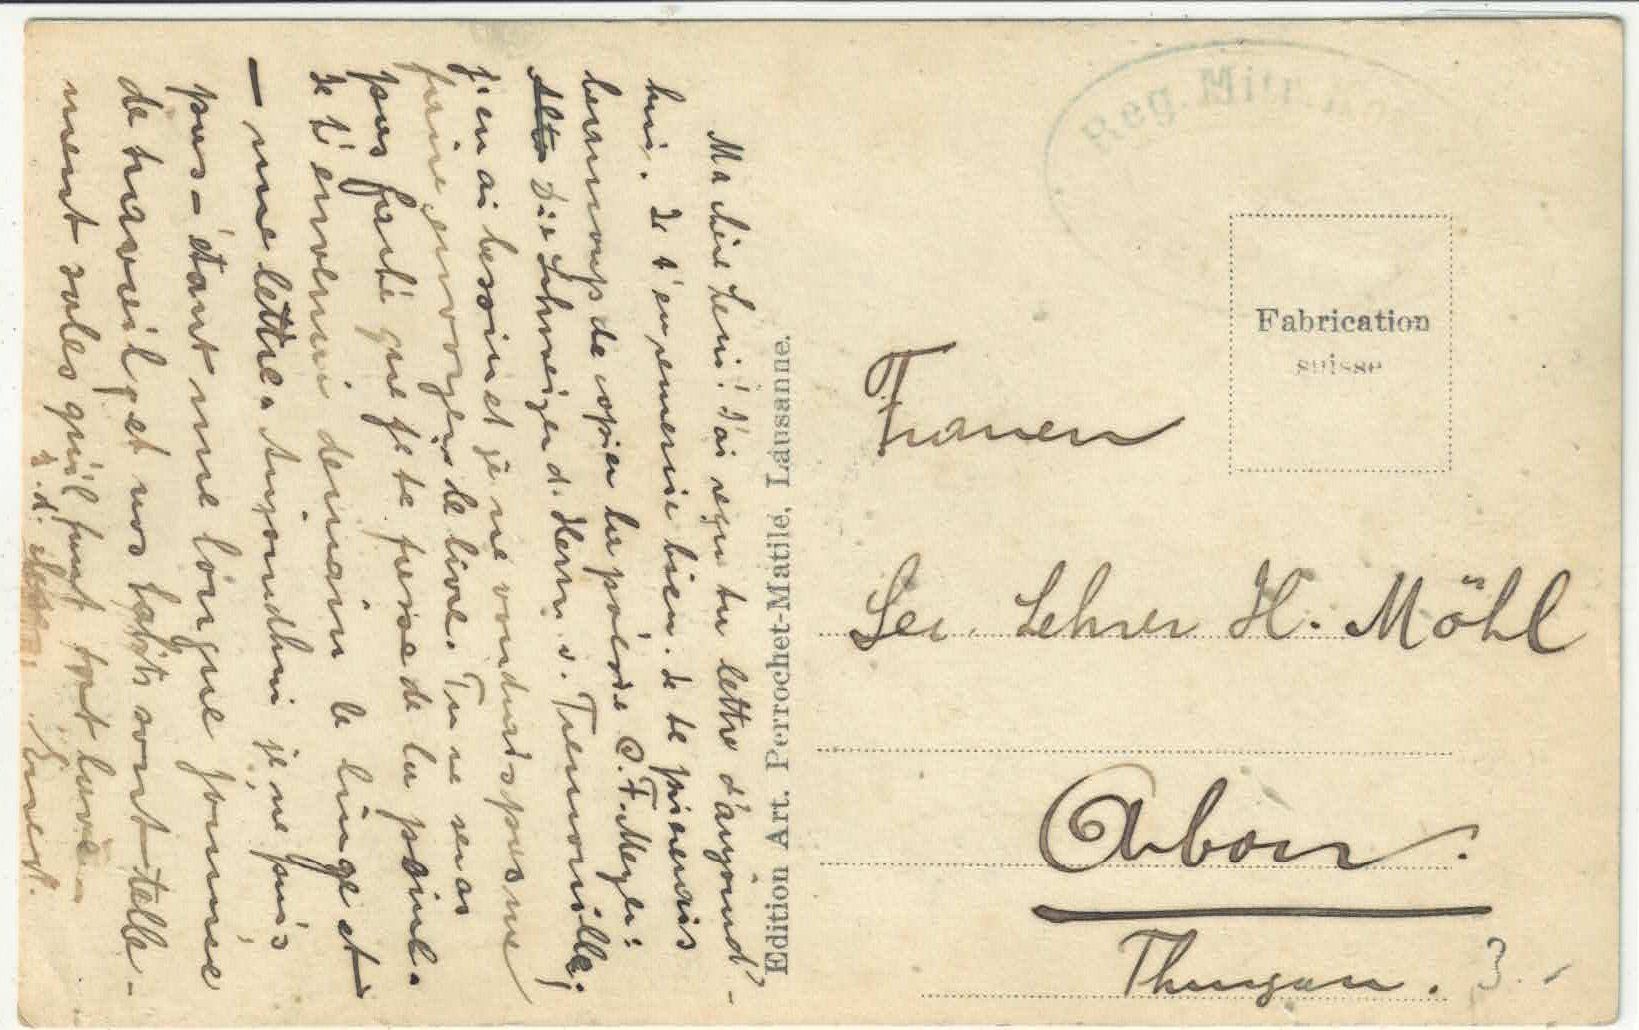 Ma chère Leni! J'ai reçu ta lettre d'aujourd'-
hui. Je t'en remercie bien. Je te prierais
beaucoup de copier la poésie C. F. Meyer:
Die Schweizer d. Herrn v. Tremouille;
j'en ai besoin et je ne voudrais pas me
faire envoyer le livre. Tu ne seras
pas fachée que je te fasse de la peine.
Je t'enverrai demain le linge et
– une lettre. Aujourdhui je ne puis
pas – étant une longue journée
de travail et nos habits sont telle-
ment sales qu'il faut tout laver.
Ernst.
Edition Art. Perrochet-Matile, Lausanne.
Reg. Mitr.
Fabrication
suisse
Frauen
Sec. Lehrer H. Möhl
Arbon.
Thurgau.
3.